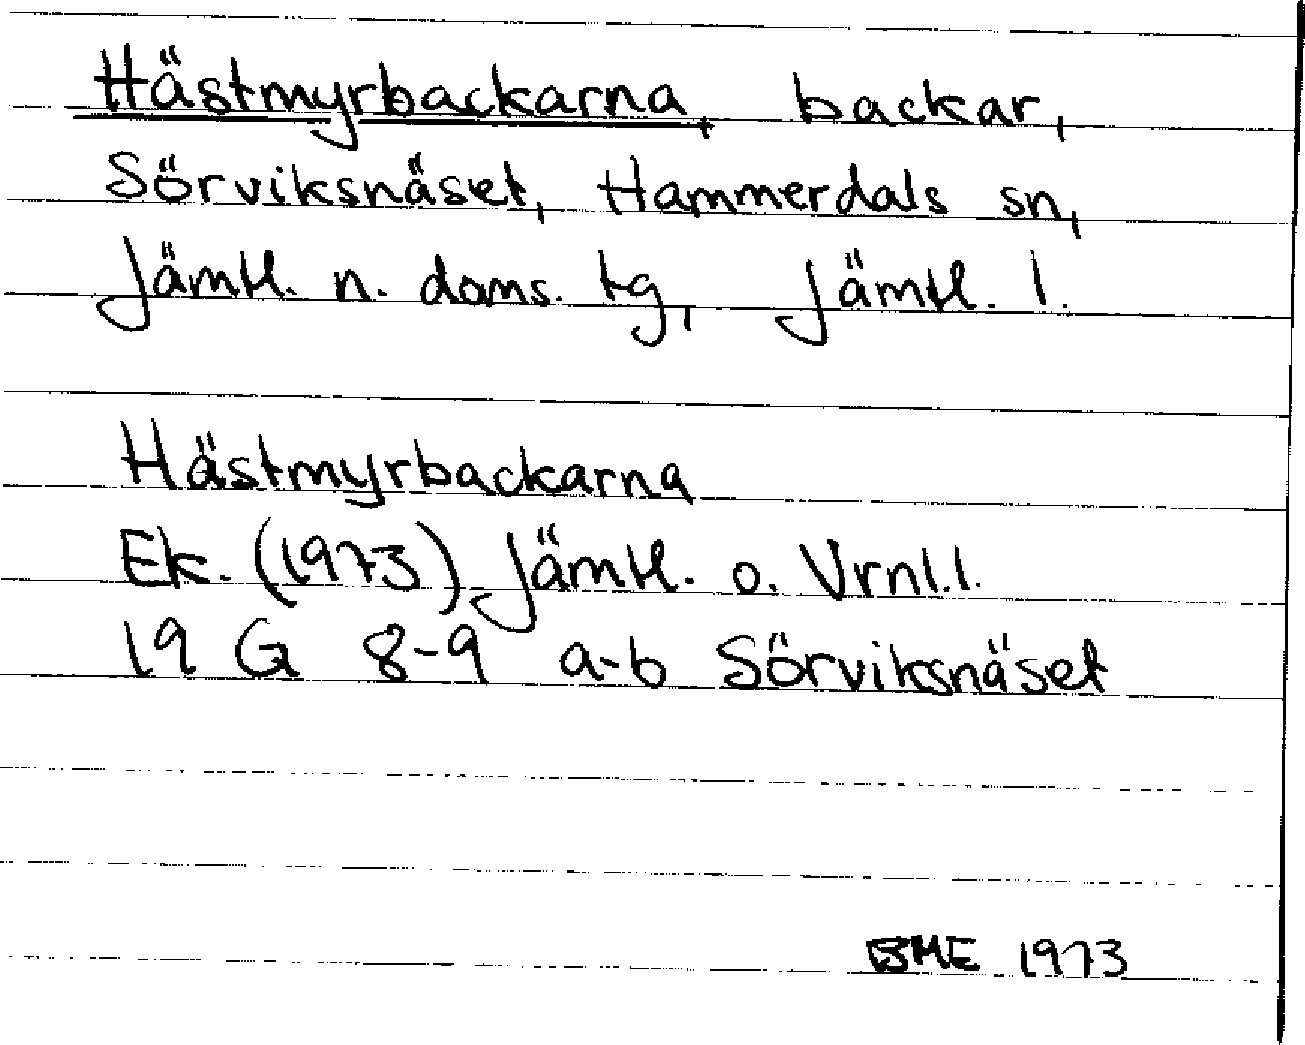 Hästmyrbackarna, backar,
Sörviksnäset, Hammerdals sn,
Jämtl. n. doms. tg, Jämtl. l.
Hästmyrbackarna
Ek. (1973) Jämtl. o. Vrnl.l.
19 G 8-9 a-b Sörviksnäset
BME 1973